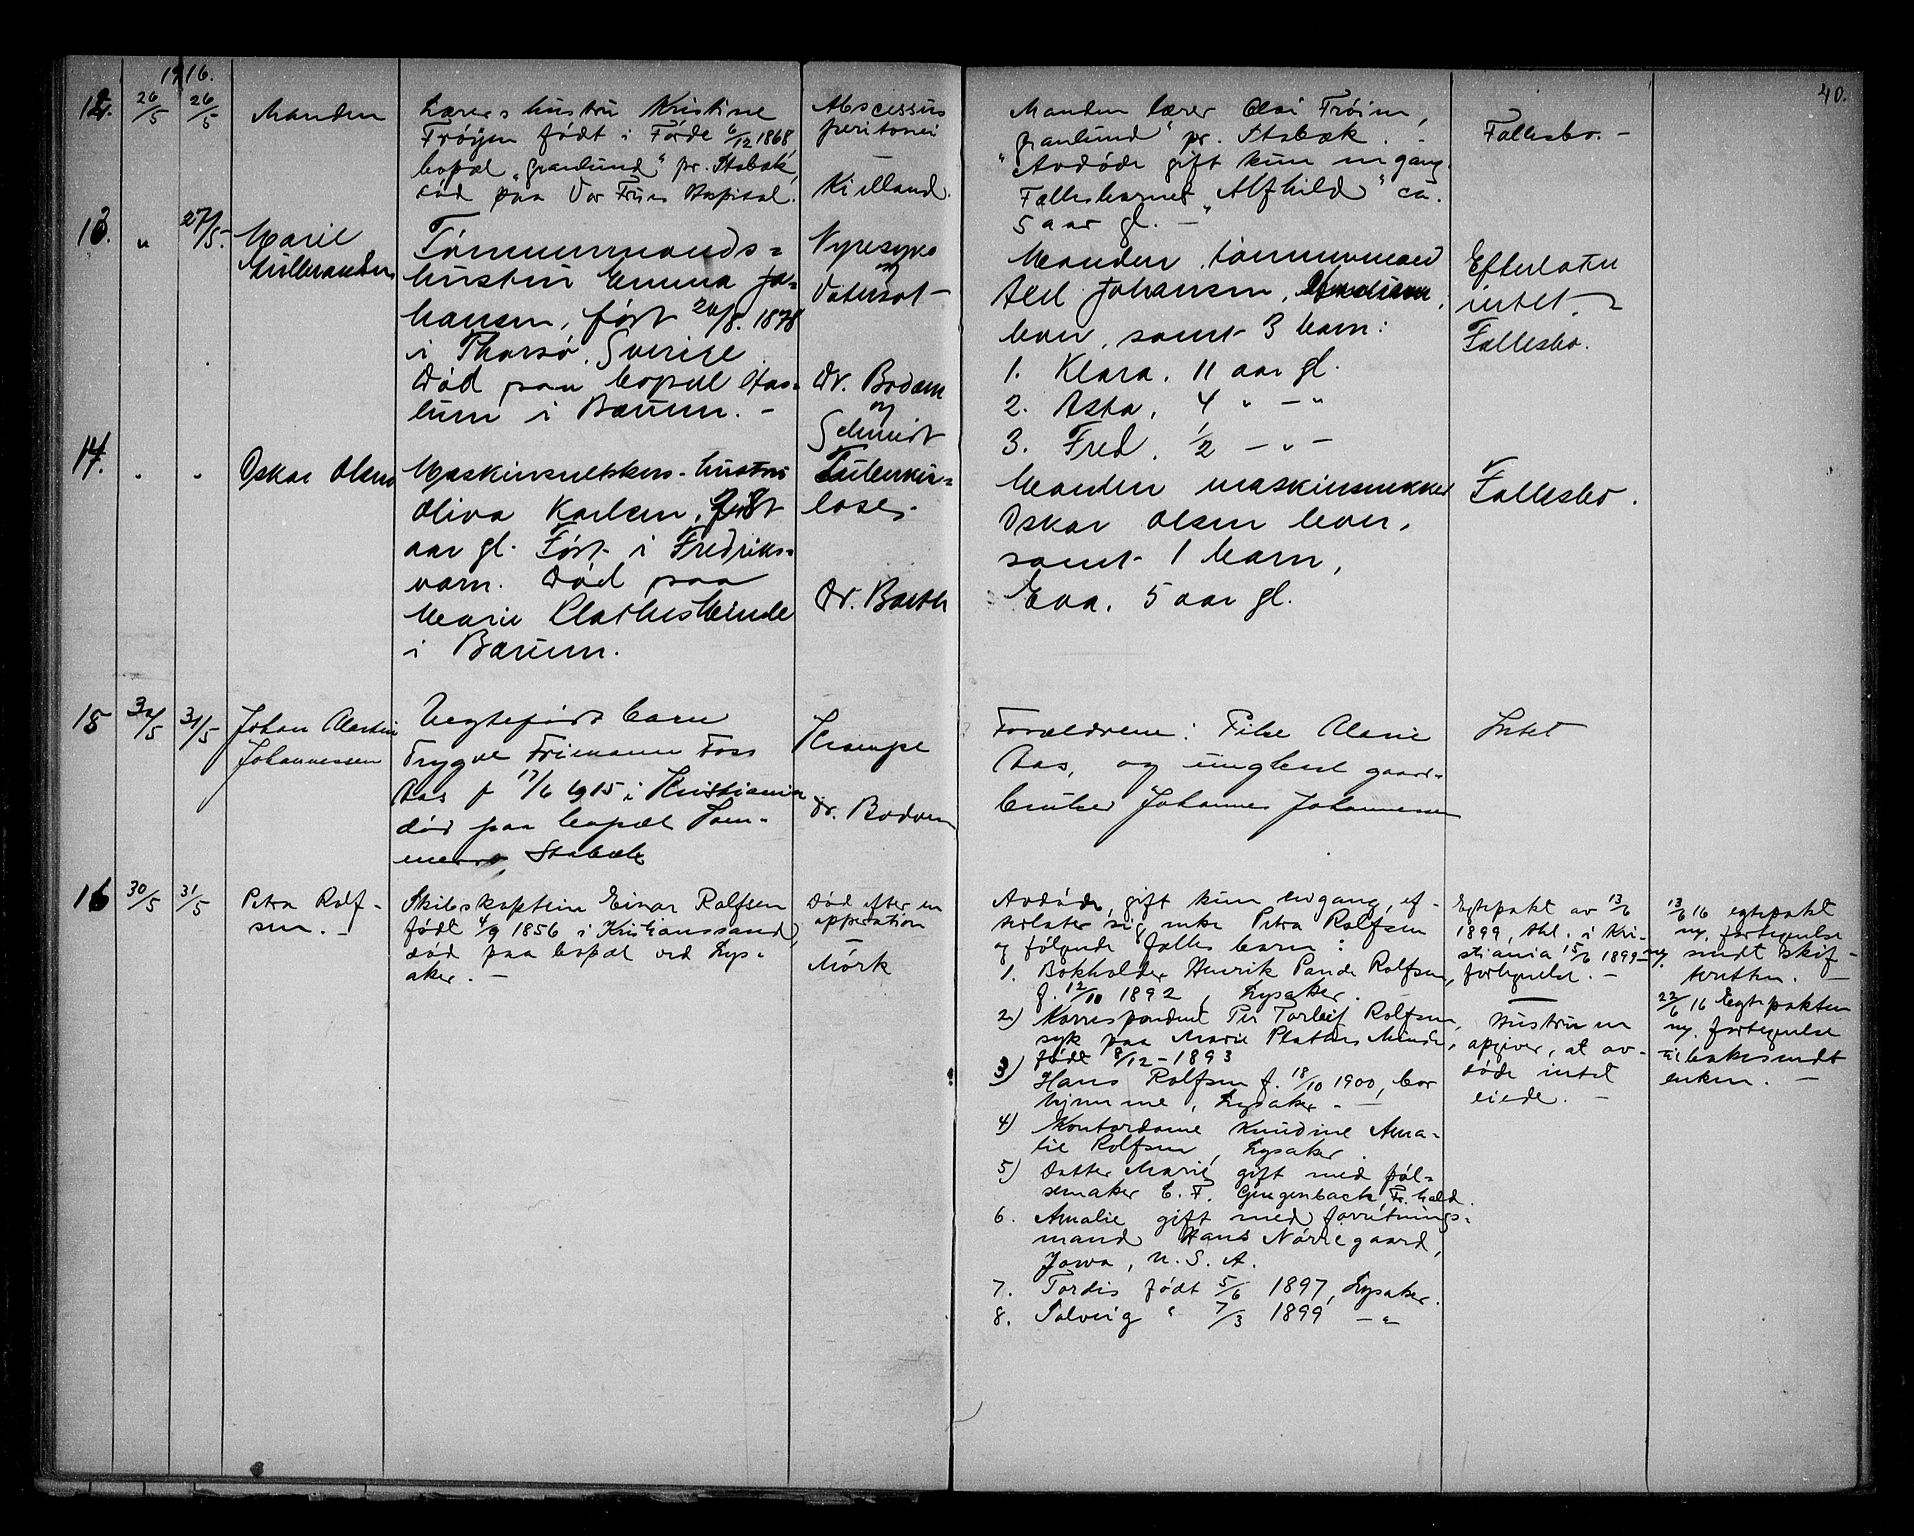 40.
1916.
12. 26/5 26/5 Manden
Lærers hustru Kristine
Frøyen født i Førde 6/12 1868,
bopæl „Granlund" pr. Stabæk,
død paa Vor Frues Hospital.
Abscessus
peritonei
—
Kielland.
Manden lærer Frøien,
„Granlund" pr. Stabæk.
Avdøde gift kun en gang.
Fællesbarnet „Alfhild" ca.
5 aar gl. —
Fællesbo. —
13. " 27/5. Marie
Tømmermands=
hustru Emma Jo=
hansen, født 20/8. 1878
i Thorsø, Sverige.
Død paa bopæl Has=
lum i Bærum. —
Nyresyge
og
Vatersot —
Dr. Bodom
og
Schmidt
Manden, tømmermand
Axel Johansen,
lever, samt 3 barn:
1. Klara, 11 aar gl.
2. Asta, 4 " — "
3. Fred, 1/2 — " —
Efterlater
intet. —
Fællesbo.
14. " " Oskar Olsen
Maskinsnekkers hustru
Oliva Karlsen,
aar gl. Født i Fredriks=
værn. Død paa
Marie Plathes Minde
i Bærum.
Tuberku=
lose.
Dr. Barth
Manden maskinsnekker
Oskar Olsen lever,
samt 1 barn,
Eva, 5 aar gl.
Fællesbo.
15 31/5 Johan Martin
Johannessen
Uegtefødt barn
Trygve Frimann Foss
Aas f 17/6 1915 i Kristiania
død paa bopæl
Stabæk
Krampe
Dr. Bodom
Forældrene: Pike Marie
Aas, og ungkarl gaard-
bruker Johannes Johannessen
Intet
16 30/5 31/5 Petra Rolf-
sen. —
Skibskaptein Einar Rolfsen
født 4/9 1856 i Kristianssand,
død paa bopæl ved Lys-
aker. —
Død efter en
opperation
—
Mørk
Avdøde, gift kun en gang, ef-
terlater sig enke Petra Rolfsen
og følgende fælles barn:
1. Bokholder Henrik Pande Rolfsen,
f. 12/10 1892, Lysaker.
2) Korrespondent Per Torleif Rolfsen,
syk paa Marie Plathes Minde,
født 8/12 - 1893
3) Hans Rolfsen f. 18/10 1900, bor
hjemme, Lysaker. —
4) Kontordame Knudine Ama-
lie Rolfsen, Lysaker.
5) Datter Marie gift med pøl-
semaker E. F. Gengenbach Fr.hald.
6. Amalie gift med forretnings-
mand Hans Nørregaard,
Jowa, U. S. A.
7. Tordis født 5/6 1897, Lysaker.
8. Solveig " 7/3 1899 — "
Egtepakt av 13/6
1899, thl. i Kri-
stiania 15/6 1899 — m/.
fortegnelse. —
—
Hustruen
opgiver, at av-
døde intet
eiede. —
13/6 16 egtepakt
m/. fortegnelse
sendt skif-
teretten. —
22/6 16 Egtepakten
m/. fortegnelse
tilbakesendt
enken. —